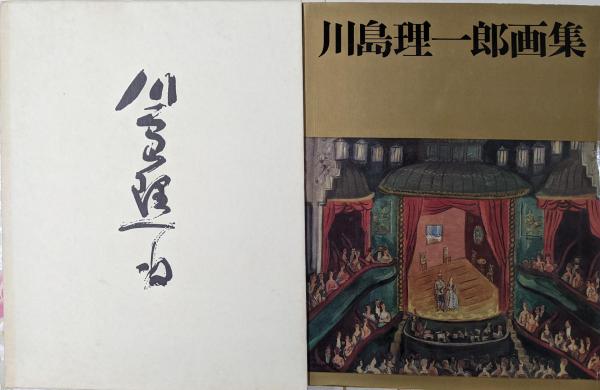 川島理一郎
川島理一郎画集